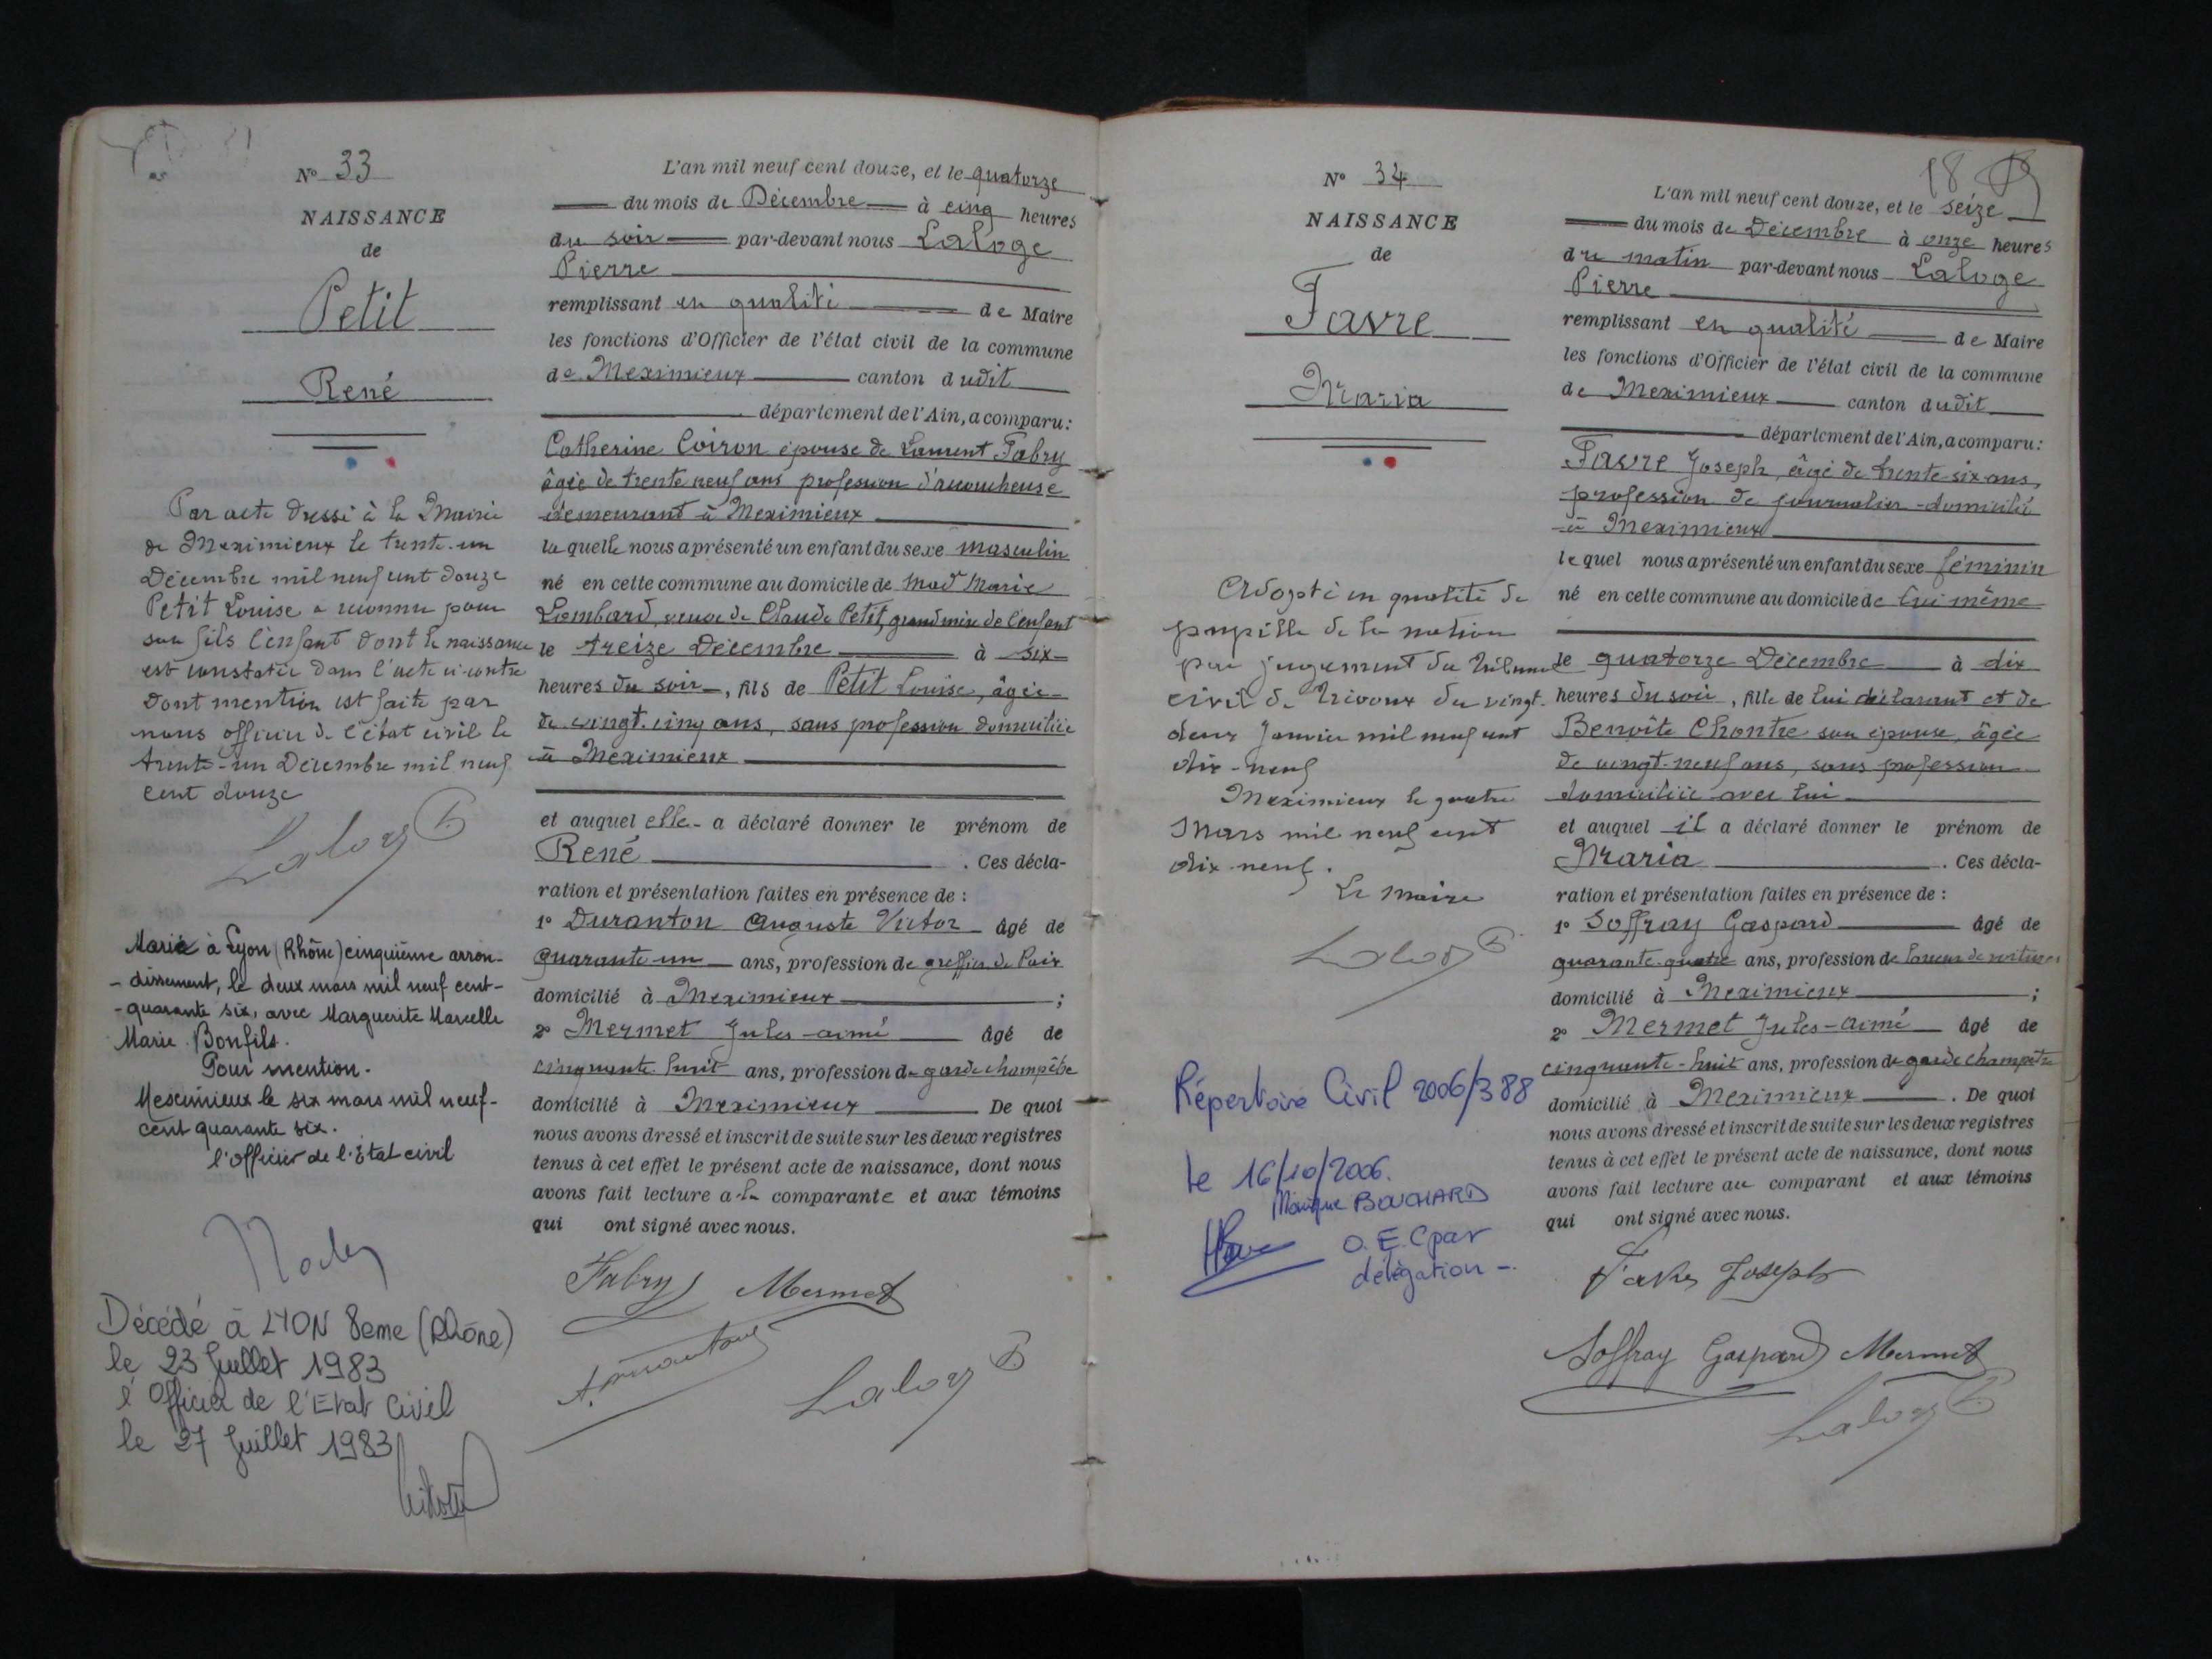 N° 33
NAISSANCE
de
Petit
René
Par acte dressé à la Mairie
de Meximieux le trente-un
Décembre mil neuf cent douze
Petit Louise a reconnu pour
son fils l'enfant dont la naissance
est constatée dans l'acte ci-contre
Dont mention est faite par
nous officier de l'état civil le
trente-un Décembre mil neuf
cent douze
Laloge P.
Marié à Lyon (Rhône) cinquième arron-
-dissement, le deux mars mil neuf cent-
-quarante six, avec Marguerite Marcelle
Marie Bonfils.
Pour mention.
Meximieux le six mars mil neuf-
cent quarante six.
l'officier de l'Etat civil
Décédé à LYON 8eme (Rhône)
le 23 Juillet 1983
l'Officier de l'Etat Civil
le 27 Juillet 1983
L'an mil neuf cent douze, et le quatorze
du mois de Décembre à cinq heures
du soir par-devant nous Laloge
Pierre
remplissant en qualité de Maire
les fonctions d'Officier de l'état civil de la commune
de Meximieux canton dudit
département de l'Ain, a comparu:
Catherine Coiron épouse de Laurent Fabry
âgée de trente neuf ans profession d'accoucheuse
demeurant à Meximieux
laquelle nous a présenté un enfant du sexe masculin
né en cette commune au domicile de Made Marie
Lombard, veuve de Claude Petit, grand mère de l'enfant
le treize Décembre à six
heures du soir, fils de Petit Louise, âgée
de vingt-cinq ans, sans profession domiciliée
à Meximieux
et auquel elle a déclaré donner le prénom de
René. Ces décla-
ration et présentation faites en présence de :
1° Duranton Auguste Victor âgé de
quarante-un ans, profession de greffier de Paix
domicilié à Meximieux ;
2° Mermet Jules-aimé âgé de
cinquante huit ans, profession de garde champêtre
domicilié à Meximieux De quoi
nous avons dressé et inscrit de suite sur les deux registres
tenus à cet effet le présent acte de naissance, dont nous
avons fait lecture a la comparante et aux témoins
qui ont signé avec nous.
Fabry Mermet
A. Duranton
Laloge P.
18
N° 34
NAISSANCE
de
Favre
Maria
Adopté en qualité de
pupille de la nation
par jugement du tribunal
civil de Trévoux du vingt-
deux Janvier mil neuf cent
dix-neuf
Meximieux le quatre
Mars mil neuf cent
dix neuf.
Le Maire
Laloge P.
Répertoire Civil 2006/388
le 16/10/2006.
Monique BOUCHARD
O.E.C par
délégation -.
L'an mil neuf cent douze, et le seize
du mois de Décembre à onze heures
du matin par-devant nous Laloge
Pierre
remplissant en qualité de Maire
les fonctions d'Officier de l'état civil de la commune
de Meximieux canton dudit
département de l'Ain, a comparu:
Favre Joseph, âgé de trente-six ans,
profession de journalier domicilié
à Meximieux
lequel nous a présenté un enfant du sexe féminin
né en cette commune au domicile de lui même
le quatorze Décembre à dix
heures du soir, fille de lui déclarant et de
Benoîte Chontre son épouse, âgée
de vingt-neuf ans, sans profession
domiciliée avec lui
et auquel il a déclaré donner le prénom de
Maria. Ces décla-
ration et présentation faites en présence de :
1° Soffray Gaspard âgé de
quarante-quatre ans, profession de loueur de voitures
domicilié à Meximieux ;
2° Mermet Jules-aimé âgé de
cinquante-huit ans, profession de garde champêtre
domicilié à Meximieux. De quoi
nous avons dressé et inscrit de suite sur les deux registres
tenus à cet effet le présent acte de naissance, dont nous
avons fait lecture au comparant et aux témoins
qui ont signé avec nous.
Favre Joseph
Soffray Gaspard Mermet
Laloge P.